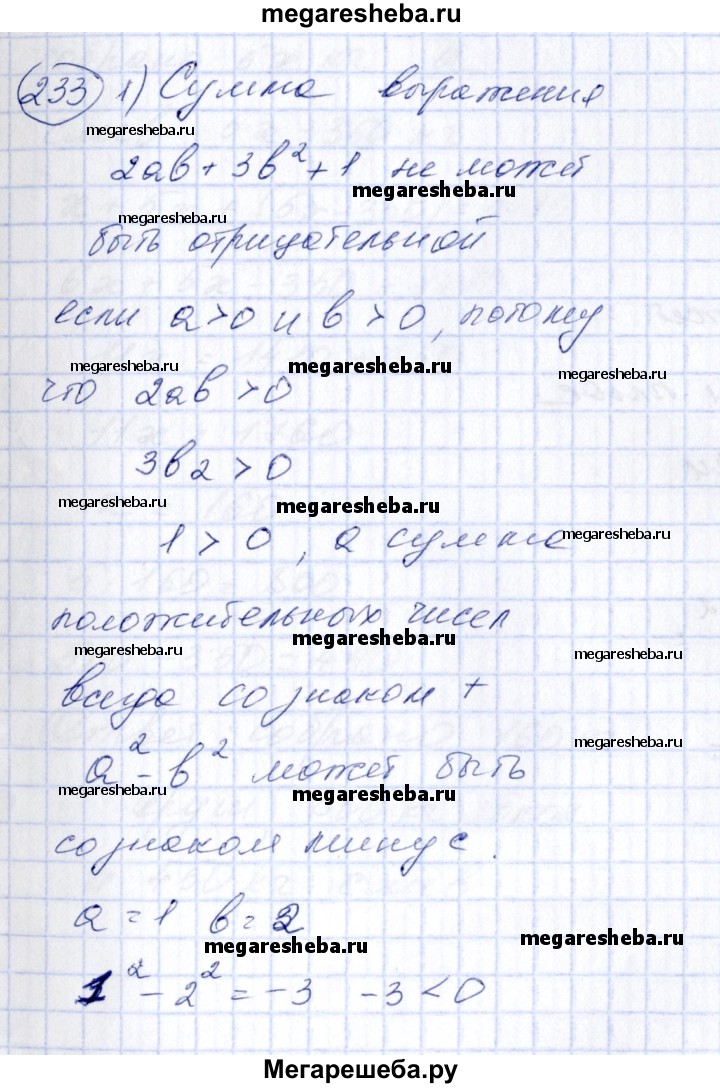 megaresheba.ru
233 1) Сумма выражения
megaresheba.ru
megaresheba.ru
2ab + 3b² + 1 не может
megaresheba.ru
megaresheba.ru
быть отрицательной
если a > 0 и b > 0, потому
megaresheba.ru
megaresheba.ru
что 2ab > 0
3b2 > 0
megaresheba.ru
megaresheba.ru
megaresheba.ru
1 > 0, а сумма
положительных чисел
megaresheba.ru
megaresheba.ru
megaresheba.ru
всегда со знаком +
megaresheba.ru
a² - b² может быть
megaresheba.ru
megaresheba.ru
megaresheba.ru
со знаком минус.
a = 1 b = 2
megaresheba.ru
megaresheba.ru
1² - 2² = -3 -3 < 0
Мегарешеба.ру